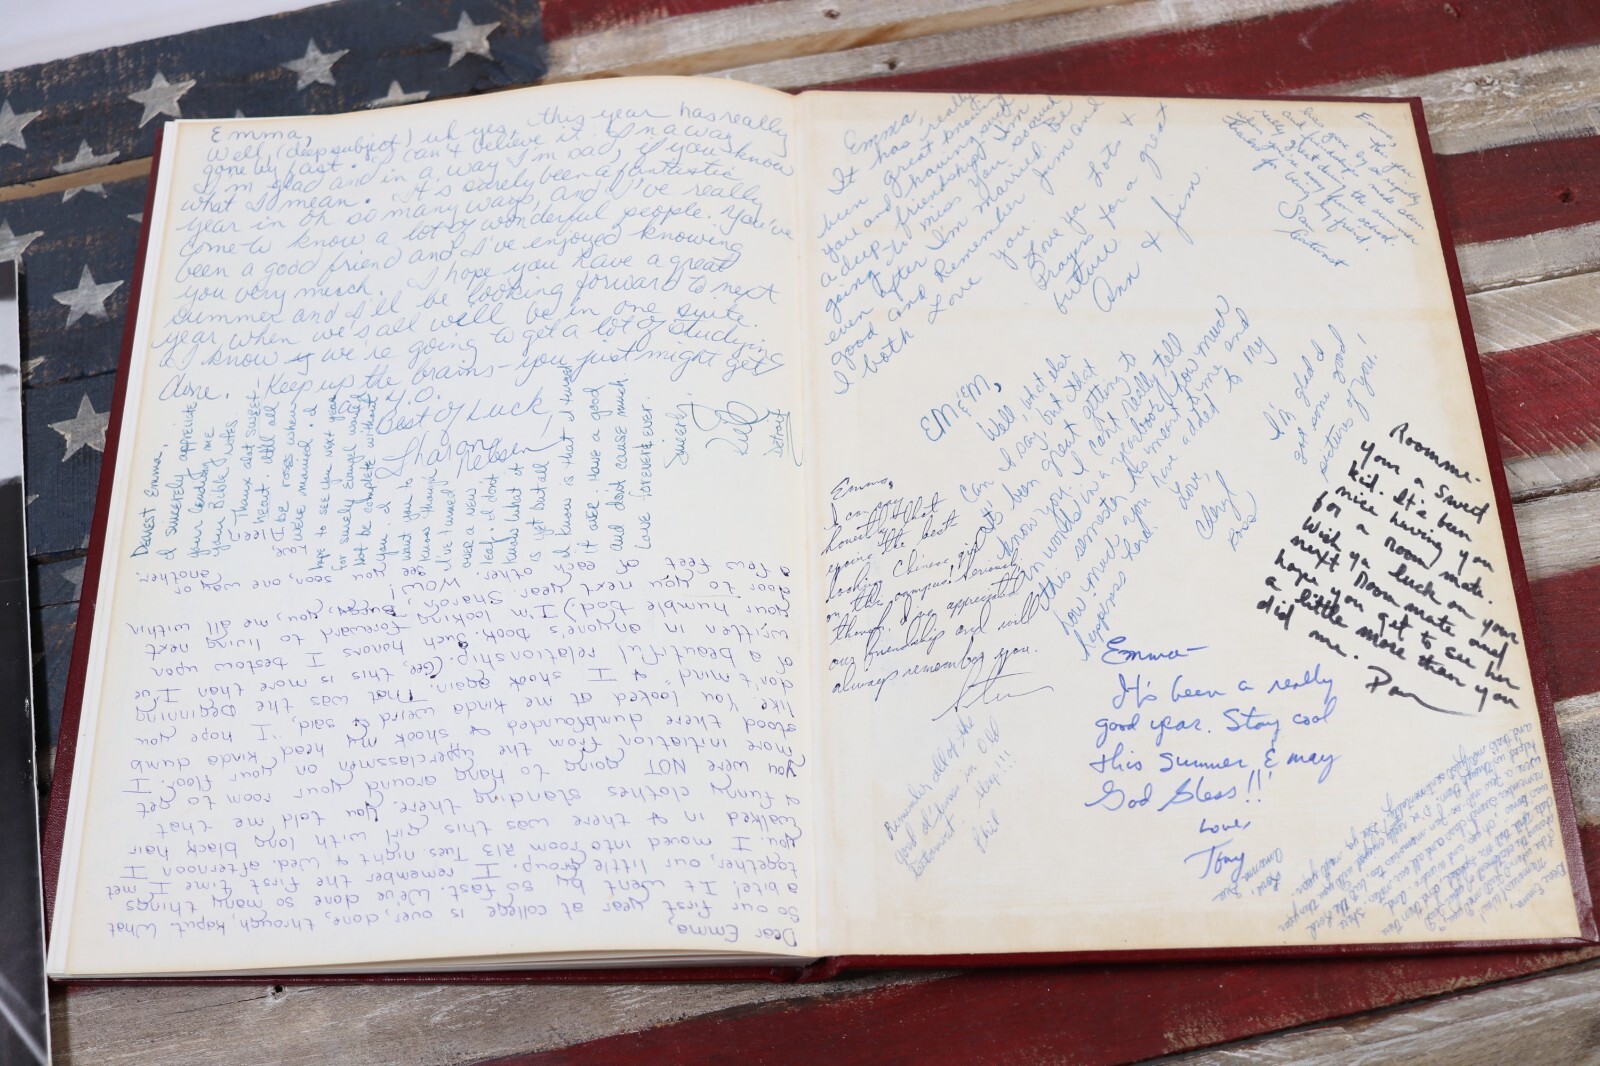 Emma,
Well, (deep subject) uh yes, this year has really
gone by fast. I can't believe it. In a way
I'm glad and in a way I'm sad, if you know
what I mean. It's surely been a fantastic
year in oh so many ways, and I've really
come to know a lot of wonderful people. You've
been a good friend and I've enjoyed knowing
you very much. I hope you have a great
summer and I'll be looking forward to next
year when we's all will be in one suite.
I know we're going to get a lot of studying
done. Keep up the brains - you just might get
Best of Luck,
Sharon
Dearest Emma,
I sincerely appreciate
your lending me
your Bible notes
Thanx alot sweet-
heart. It'll all
be roses when
we're married. I
hope to see you next year
for surely Evangel would
not be complete without
you. I
want you to
know that
I've turned
over a new
leaf. I don't
know what it
is yet but all
I know is that I turned
it over. Have a good
and don't cause much
Love forever over.
Sincerely,
Dear Emma,
So our first year at college is over, done, through, kaput. What
a bite! It went by so fast. We've done so many things
together, our little group. I remember the first time I met
you. I moved into room 213 Tues. night & Wed. afternoon I
walked in & there was this girl with long black hair
& funny clothes standing there. You told me that
you were NOT going to hang around your room to get
more initiation from the upperclassmen on your floor. I
stood there dumbfounded & shook my head kinda dumb
like. You looked at me kinda weird & said, "I hope you
don't mind" & I shook again. That was the beginning
of a beautiful relationship. (Gee, this is more than I've
written in anyone's book. Such honors I bestow upon
your humble bod.) I'm looking forward to living next
door to you next year. Sharon, Buggy, you, me all within
a few feet of each other. WOW! See you soon, one way or
another.
Love,
Emma,
It has really
been great knowing
you and having such
a deep friendship. I'm
going to miss you around
even after I'm married. Be
good and remember Jim and
I both love you.
Love ya lots +
Prayers for a great
future
Ann + Jim
Emma,
this year
has gone by so rapidly
and friendships made
really great
when you're away from school.
Thanks for being my friend.
EM & M,
Well, what else
can I say, but that
it's been great getting to
know you. I can't really tell
in words in a yearbook how much
this semester has meant to me and
how much you have added to my
happiness here.
Love,
Cheryl
I'm glad I
got some good
pictures of you!
Emma,
I can say
honestly that
you're the best
looking Chinese girl
on this campus. Seriously
though I've appreciated
our friendship and will
always remember you.
Roomme-
your a sweet
kid. It's been
nice having you
for a room mate.
Wish ya luck on your
next roommate and
hope you get to see her
a little more than you
did me.
Emma-
It's been a really
good year. Stay cool
this summer & may
God bless!!
Love,
Tony
Remember all of the
good ol' times in Old
Testament.
Phil